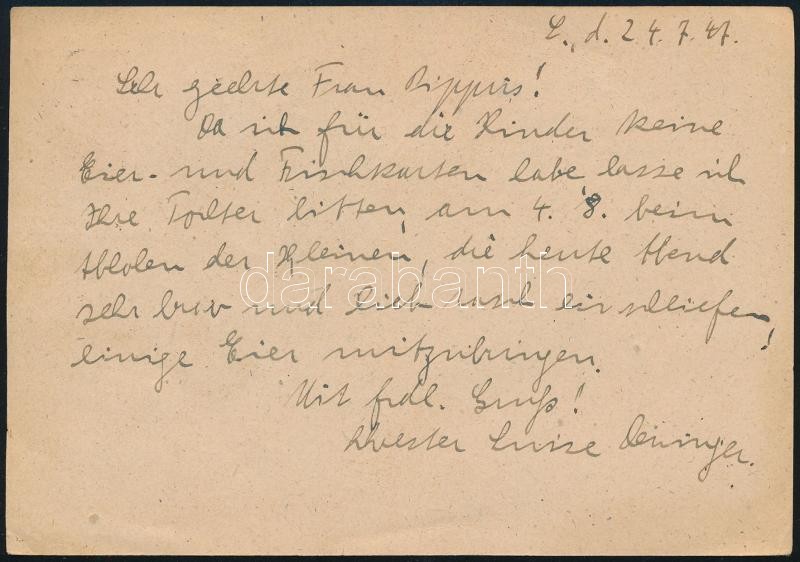 L., d. 24.7.47.
Sehr geehrte Frau Rippers!
Da ich für die Kinder keine
Eier- und Fischkarten habe lasse ich
Ihre Tochter bitten, am 4. 8. beim
Abholen der Kleinen, die heute Abend
sehr brav und lieb rasch einschliefen,
einige Eier mitzubringen.
Mit frdl. Gruß!
Schwester Luise
darabanth